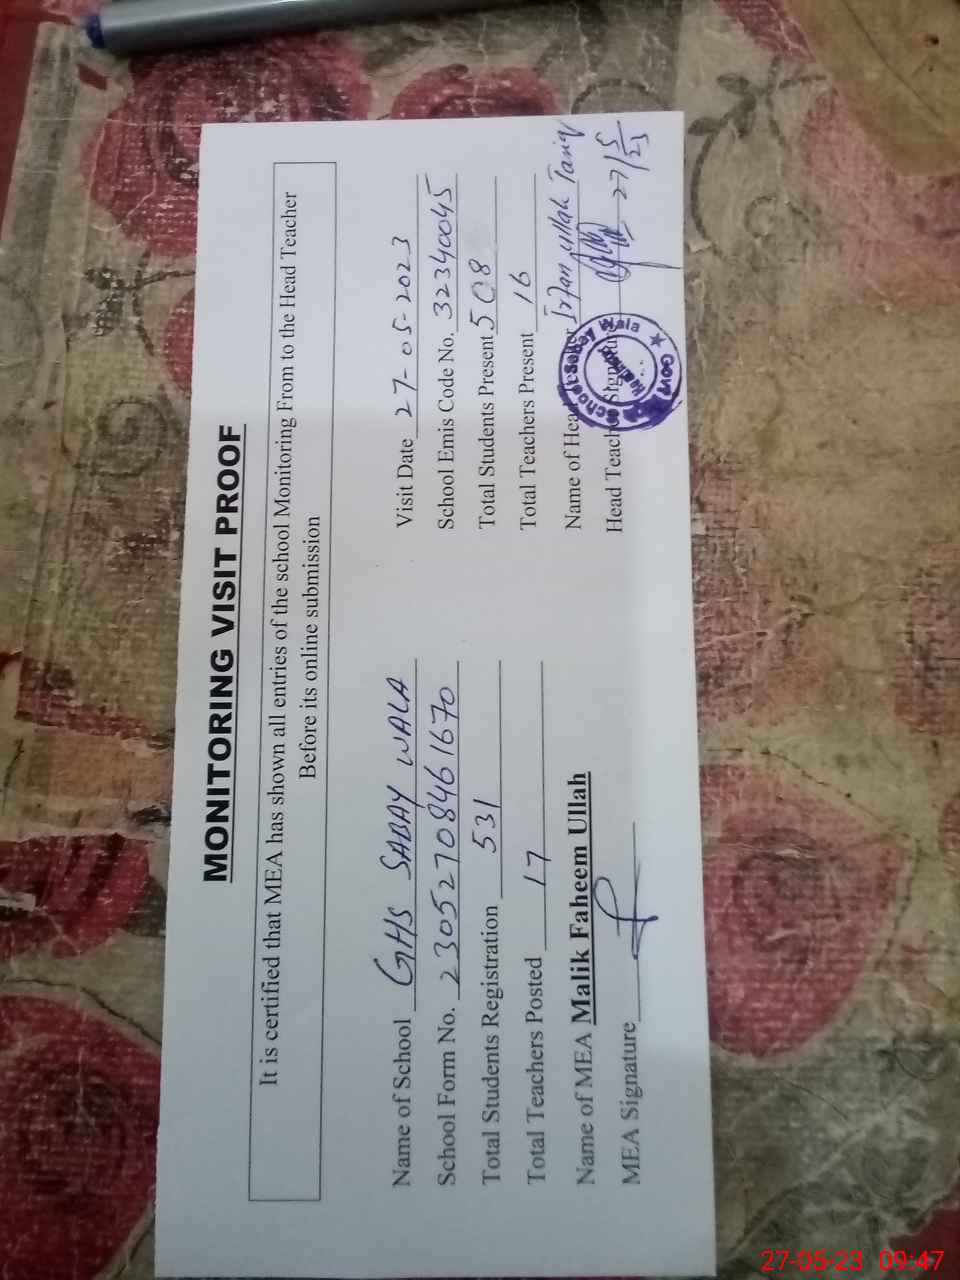 MONITORING VISIT PROOF
It is certified that MEA has shown all entries of the school Monitoring From to the Head Teacher
Before its online submission
Name of School GHS SABAY WALA
Visit Date 27-05-2023
School Form No. 230527084661670
School Emis Code No. 32340045
Total Students Registration 531
Total Students Present 508
Total Teachers Posted 17
Total Teachers Present 16
Name of MEA Malik Faheem Ullah
Name of Head Teacher Irfan ullah Tariq
MEA Signature
Head Teacher Signature 27/5/23
Govt High School Sabay Wala
27-05-23 09:47